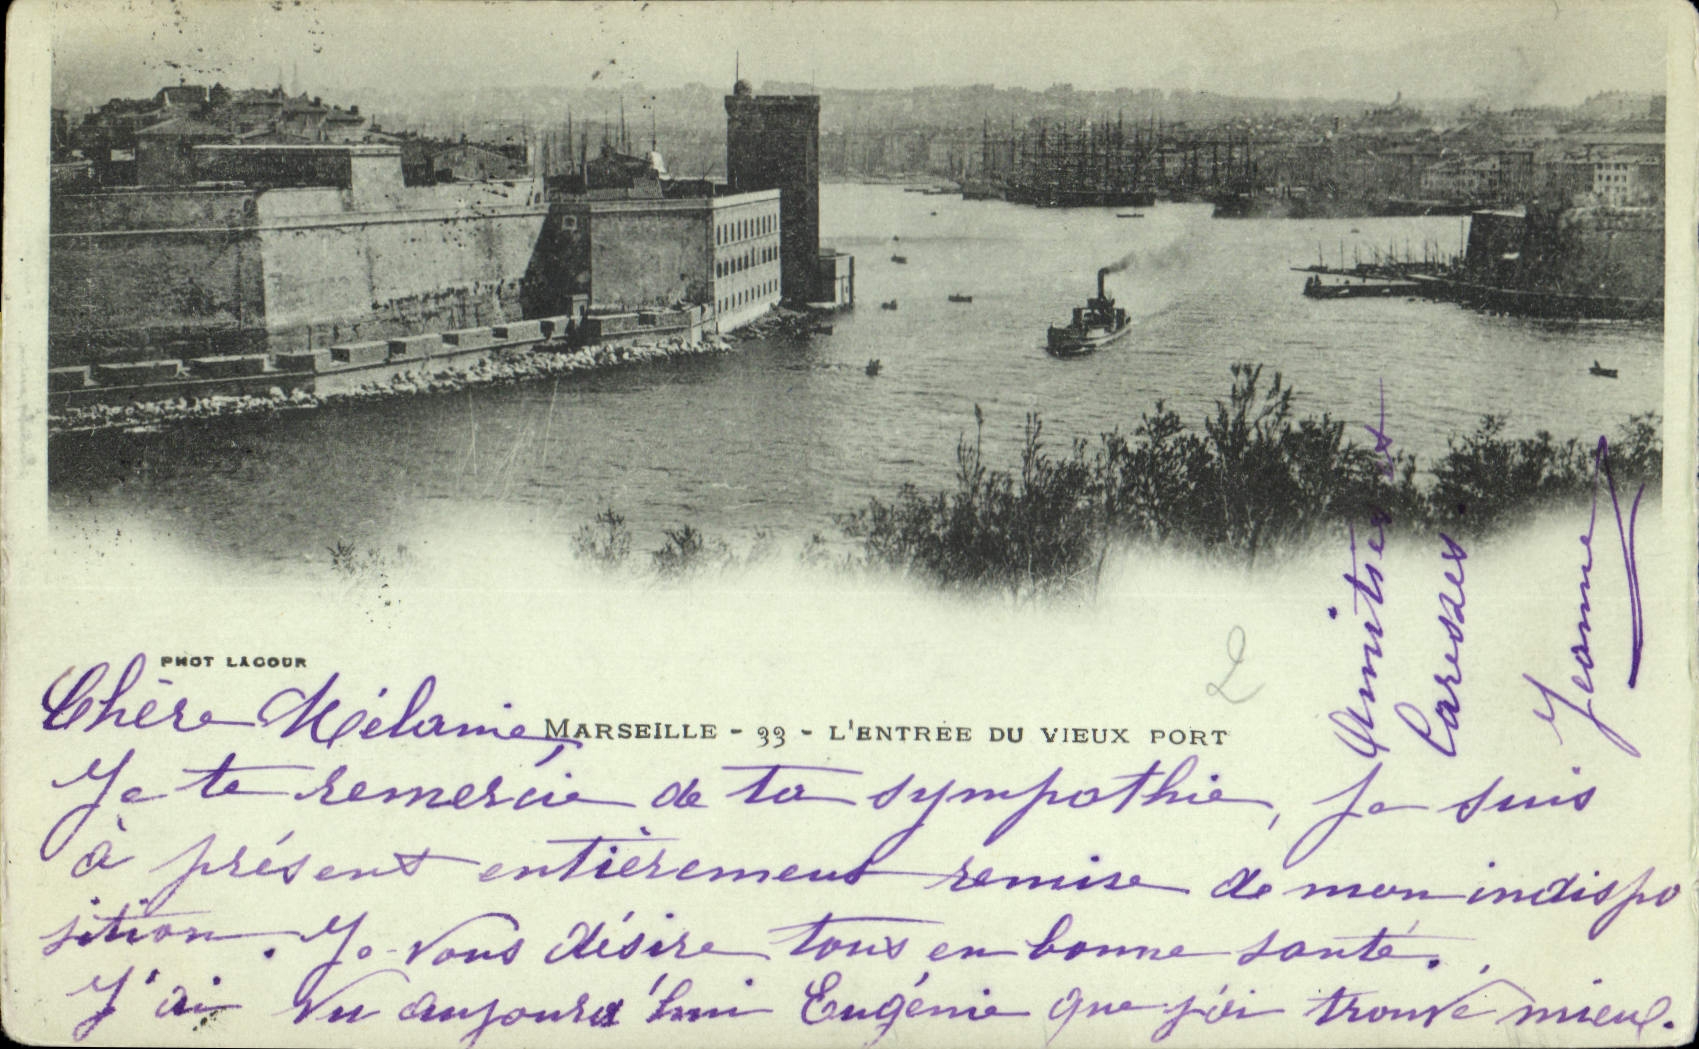 PHOT LACOUR
MARSEILLE - 33 - L'ENTRÉE DU VIEUX PORT
2
Chère Mélanie,
Je te remercie de ta sympathie, je suis
à présent entièrement remise de mon indispo
sition. Je vous désire tous en bonne santé.
J'ai vu aujourd'hui Eugénie que j'ai trouvé mieux.
Amitiés et
Caresses.
Jeanne